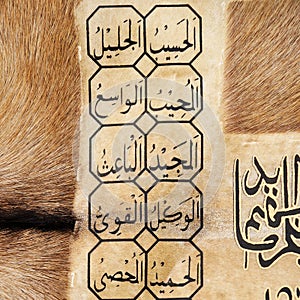 الحسيب الجليل
المجيب الواسع
المجيد الباعث
الوكيل القوي
الحميد المحصي